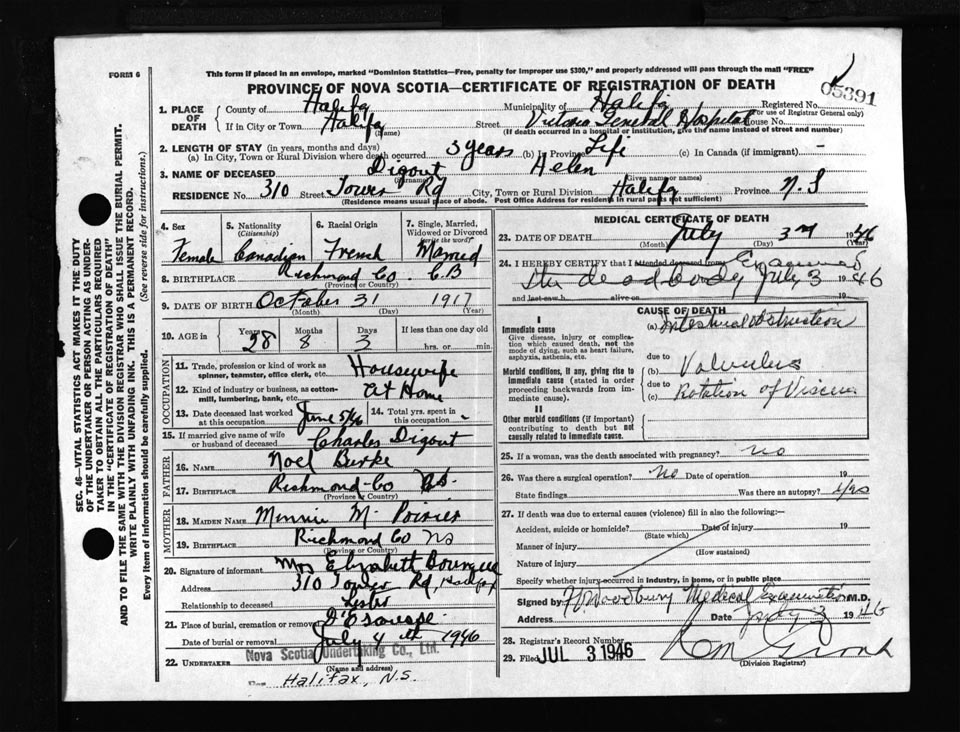 FORM 6
This form if placed in an envelope, marked "Dominion Statistics—Free, penalty for improper use $300," and properly addressed will pass through the mail "FREE"
PROVINCE OF NOVA SCOTIA—CERTIFICATE OF REGISTRATION OF DEATH
05391
1. PLACE OF DEATH County of Halifx Municipality of Halifx Registered No. (For use of Registrar General only)
If in City or Town Halifx (Name) Street Victoria General Hospital House No.
(If death occurred in a hospital or institution, give the name instead of street and number)
2. LENGTH OF STAY (in years, months and days)
(a) In City, Town or Rural Division where death occurred 3 years (b) In Province Life (c) In Canada (if immigrant) -
3. NAME OF DECEASED Digout Helen
(Surname) (Given name or names)
RESIDENCE No. 310 Street Tower Rd City, Town or Rural Division Halifx Province N.S
(Residence means usual place of abode. Post Office Address for residents in rural parts not sufficient)
SEC. 46—VITAL STATISTICS ACT MAKES IT THE DUTY
OF THE UNDERTAKER OR PERSON ACTING AS UNDER-
TAKER TO OBTAIN ALL THE PARTICULARS REQUIRED
IN THE "CERTIFICATE OF REGISTRATION OF DEATH"
AND TO FILE THE SAME WITH THE DIVISION REGISTRAR WHO SHALL ISSUE THE BURIAL PERMIT.
WRITE PLAINLY WITH UNFADING INK. THIS IS A PERMANENT RECORD.
Every item of information should be carefully supplied. (See reverse side for instructions.)
4. Sex Female
5. Nationality (Citizenship) Canadian
6. Racial Origin French
7. Single, Married, Widowed or Divorced (write the word) Married
8. BIRTHPLACE Richmond Co. C.B
(Province or Country)
9. DATE OF BIRTH October 31 1917
(Month) (Day) (Year)
10. AGE in Years 28 Months 8 Days 3 If less than one day old hrs. or min.
OCCUPATION
11. Trade, profession or kind of work as spinner, teamster, office clerk, etc. Housewife
12. Kind of industry or business, as cotton-mill, lumbering, bank, etc. At Home
13. Date deceased last worked at this occupation June 5/46 14. Total yrs. spent in this occupation -
15. If married give name of wife or husband of deceased Charles Digout
FATHER
16. NAME Noel Burke
17. BIRTHPLACE Richmond Co N.S.
(Province or Country)
MOTHER
18. MAIDEN NAME Minnie M. Poirier
19. BIRTHPLACE Richmond Co NS
(Province or Country)
20. Signature of informant Mrs Elizabeth
Address 310 Tower Rd, Halifax
Relationship to deceased Sister
21. Place of burial, cremation or removal D'Escousse
Date of burial or removal July 4th 1946
22. UNDERTAKER Nova Scotia Undertaking Co., Ltd.
(Name and address)
Halifax, N.S.
MEDICAL CERTIFICATE OF DEATH
23. DATE OF DEATH July 3rd 1946
(Month) (Day) (Year)
24. I HEREBY CERTIFY that I attended deceased from Examined
the dead body July 3 1946
and last saw h alive on 19
CAUSE OF DEATH
I
Immediate cause
Give disease, injury or complication which caused death, not the mode of dying, such as heart failure, asphyxia, asthenia, etc.
(a) Intestinal Obstruction
due to
Morbid conditions, if any, giving rise to immediate cause (stated in order proceeding backwards from immediate cause).
(b) Volvulus
due to
(c) Rotation of Viscera
II
Other morbid conditions (if important) contributing to death but not causally related to immediate cause.
25. If a woman, was the death associated with pregnancy? No
26. Was there a surgical operation? No Date of operation 19
State findings Was there an autopsy? yes
27. If death was due to external causes (violence) fill in also the following:—
Accident, suicide or homicide? Date of injury 19
(State which)
Manner of injury
(How sustained)
Nature of injury
Specify whether injury occurred in industry, in home, or in public place
Signed by Woodbury Medical Examiner M.D.
Address Date July 3 1946
28. Registrar's Record Number
29. Filed JUL 3 1946
(Division Registrar)